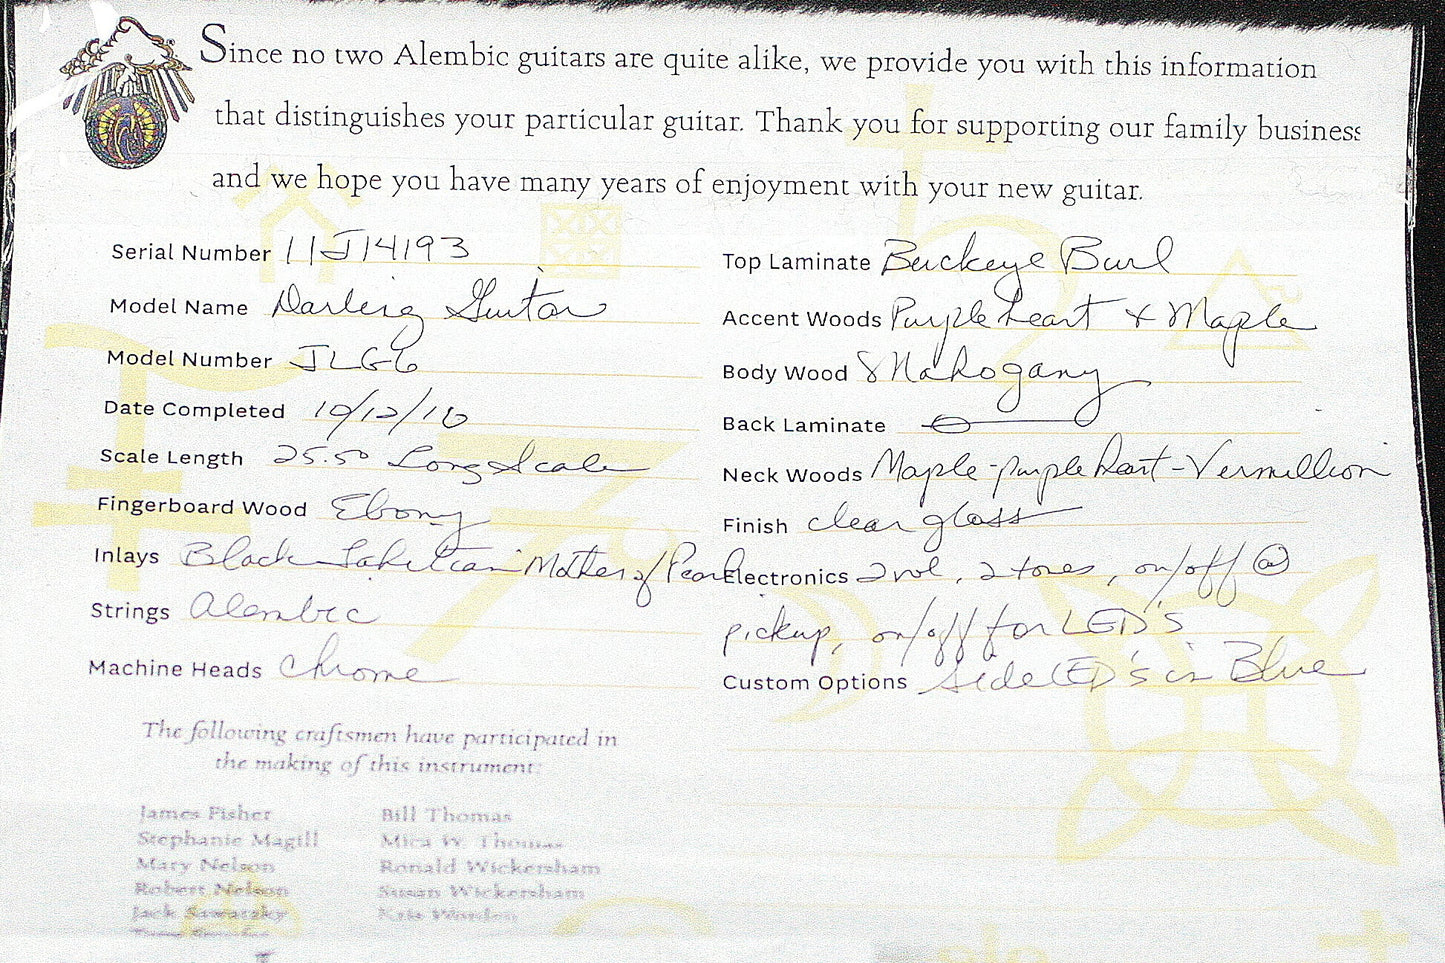 Since no two Alembic guitars are quite alike, we provide you with this information
that distinguishes your particular guitar. Thank you for supporting our family business
and we hope you have many years of enjoyment with your new guitar.
Serial Number 11J14193
Model Name Darling Guitar
Model Number JLG6
Date Completed 10/12/10
Scale Length 25.50 Long Scale
Fingerboard Wood Ebony
Inlays Black Tahitian Mother of Pearl
Strings Alembic
Machine Heads Chrome
Top Laminate Buckeye Burl
Accent Woods Purpleheart & Maple
Body Wood Mahogany
Back Laminate
Neck Woods Maple-purpleheart-Vermillion
Finish clear gloss
Electronics 2 vol, 2 tones, on/off @
pickup, on/off for LED's
Custom Options side LED's in Blue
The following craftsmen have participated in
the making of this instrument:
James Fisher
Stephanie Magill
Mary Nelson
Robert Nelson
Jack Sawatsky
Bill Thomas
Mica W. Thomas
Ronald Wickersham
Susan Wickersham